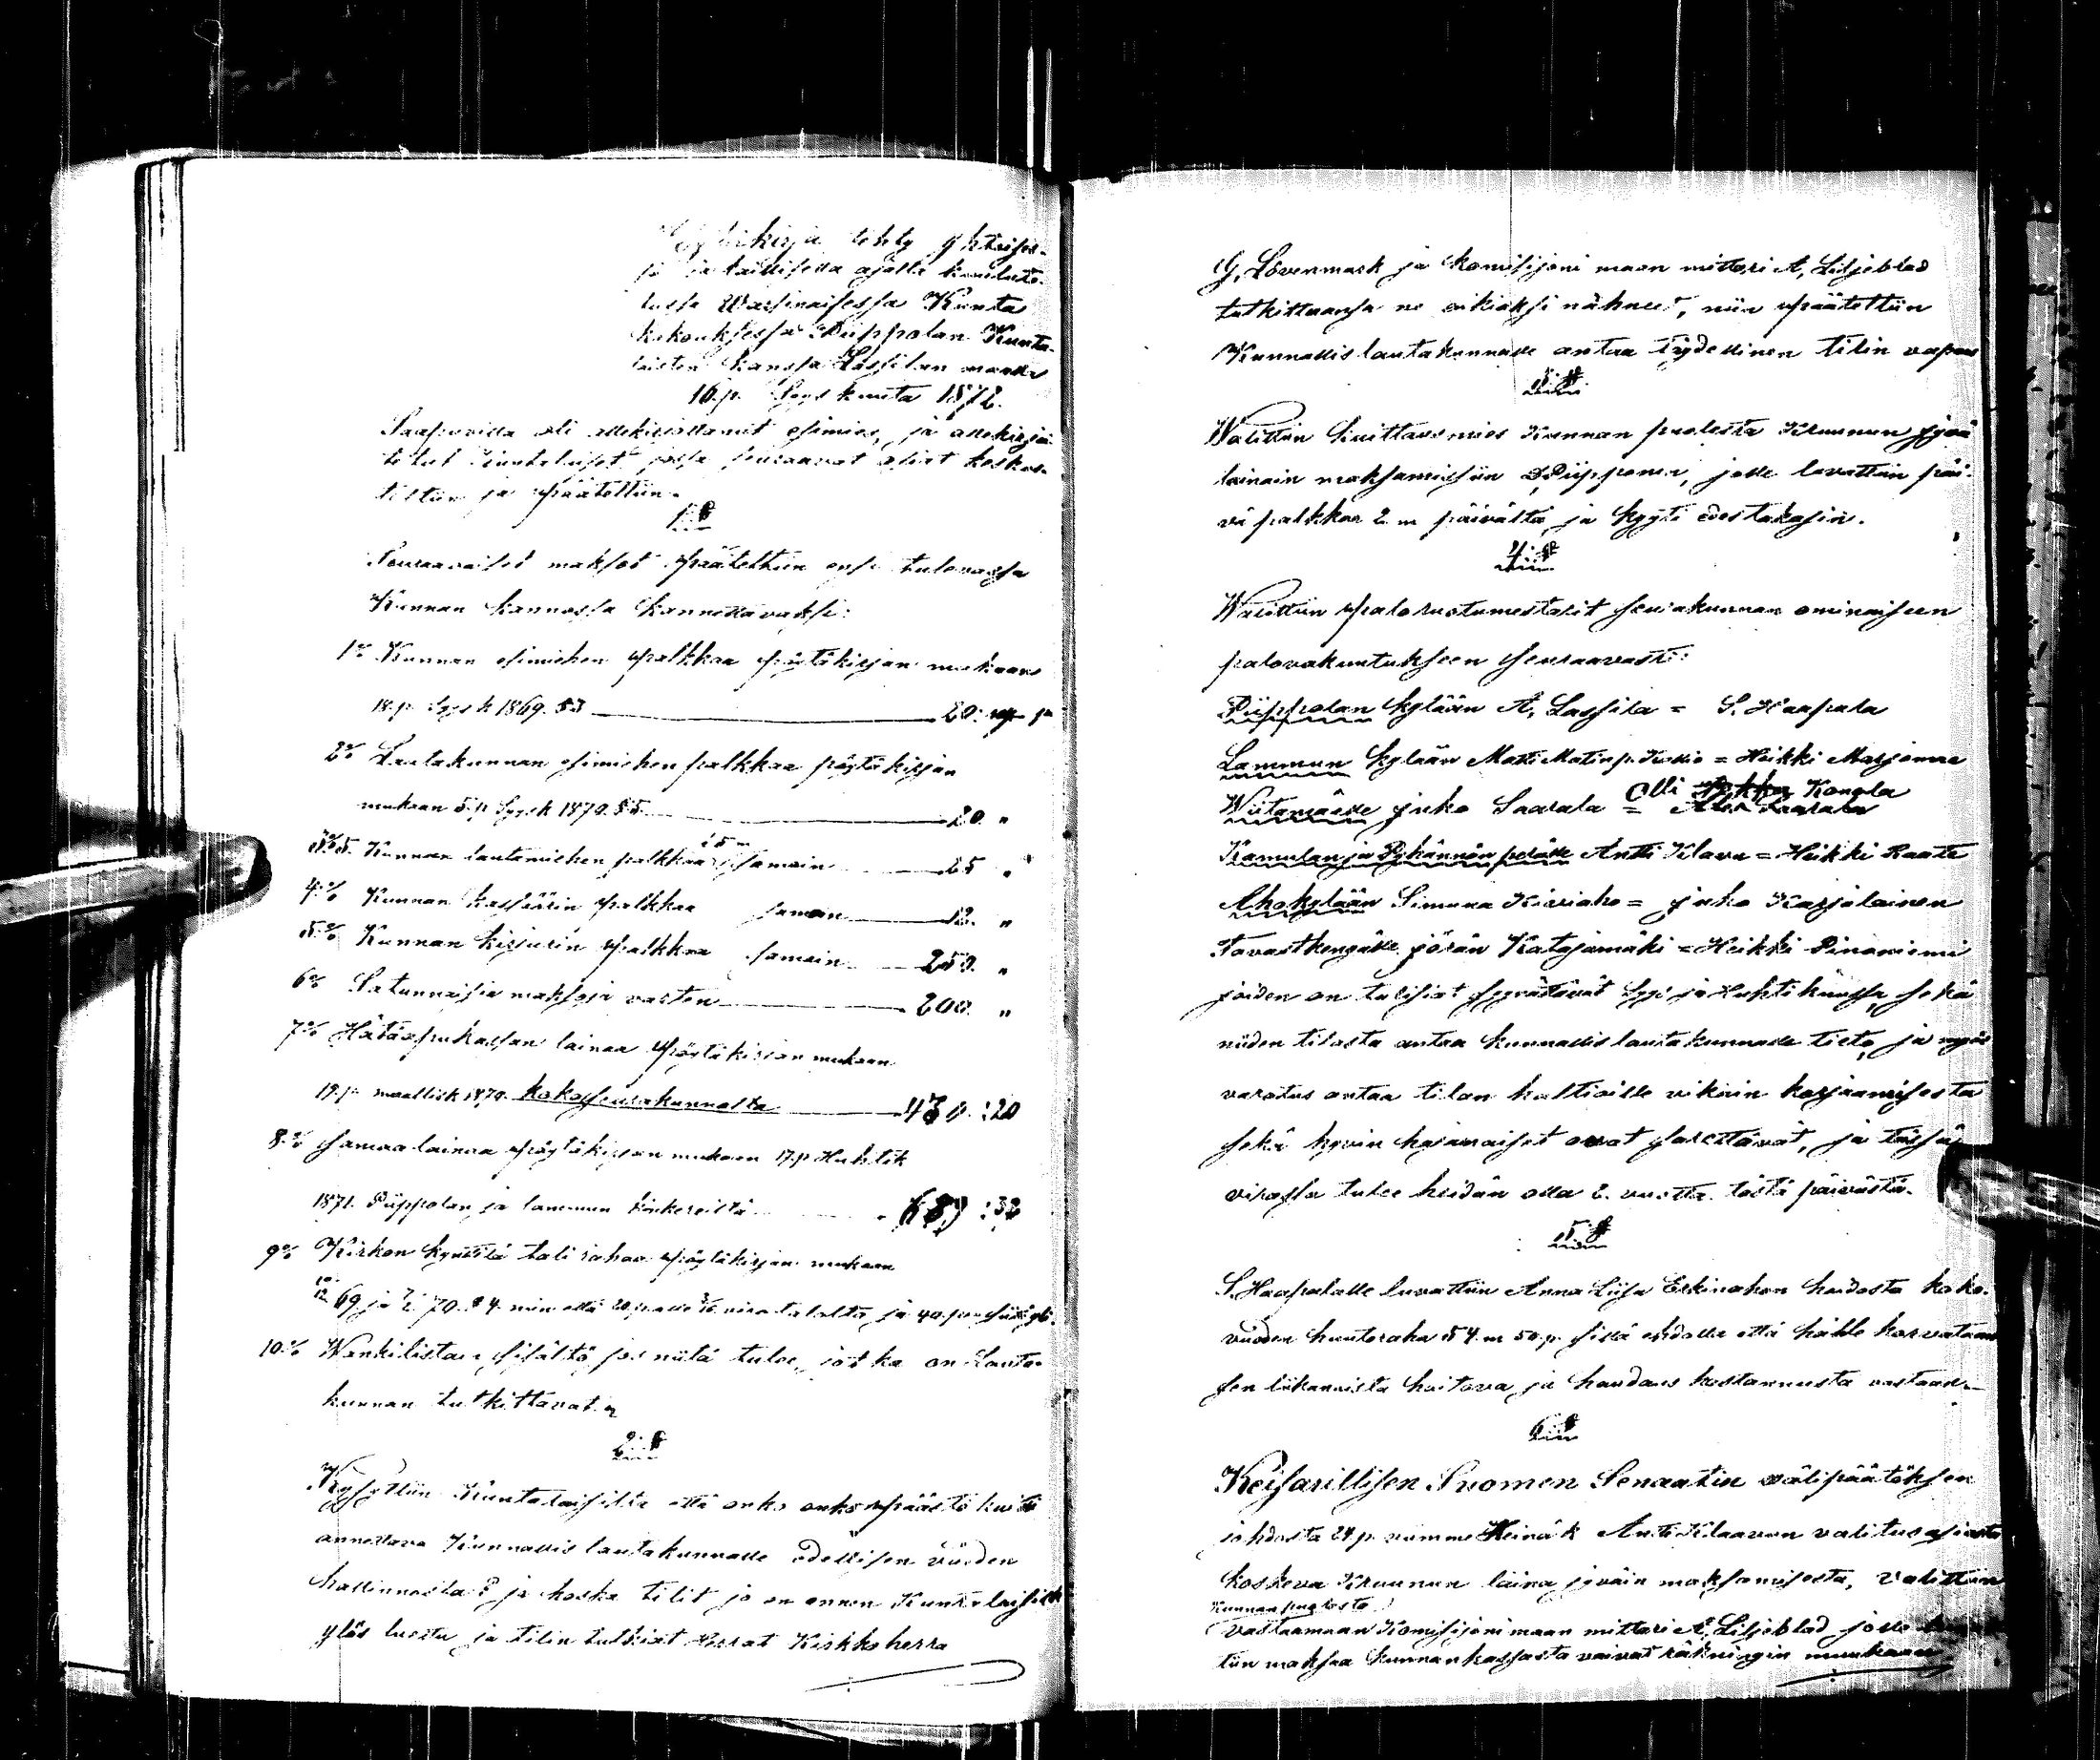 Pöytäkirja tehty yhteises-
sä ja laillisella ajalla kuulute-
tussa Warsinaisessa Kunta
kokouksessa Piippolan Kunta-
laisten kanssa Lassilan maalla
16.p. Syyskuuta 1872.
Saapuvilla oli allekirjottanut esimies, ja allekirjoi-
tetut Kuntalaiset jossa seuraavat asiat keskus-
teltiin ja päätettiin.
1 §
Seuraavaiset maksot päätettiin ensi tulevassa
Kunnan kannossa kannettavaksi:
1o/o Kunnan esimiehen palkkaa pöytäkirjan mukaan
18.p. Syysk 1869. §3 20: p
2o/o Lautakunnan esimiehen palkkaa pöytäkirjan
mukaan 5.p Syysk 1870. §5 20. "
3o/o Kunnan lautamiehen palkkaa samoin 25 "
4o/o Kunnan kassöörin palkkaa samoin 12. "
5.o/o Kunnan kirjurin palkkaa samoin 250. "
6o/o Satunnaisia maksoja varten 200. "
7o/o Hätäapukassan lainaa pöytäkirjan mukaan
19.p. maallisk 1870. koko seurakunnasta :20
8.o/o samaa lainaa pöytäkirjan mukaan 17.p Huhtik
1871. Piippolan ja lammun kinkereistä :32
9o/o Kirkon kynttilä tali rahaa pöytäkirjan mukaan
69 ja 70. § 4. niin että talolta, ja
10.o/o Wankilistan sisältö jos niitä tulee, jotka on Lauta-
kunnan tutkittavat.
2 §
Kysyttiin Kuntalaisilta että onko onko päästö kuitti
annettava Kunnallislautakunnalle edellisen vuoden
hallinnosta? ja koska tilit jo on ennen Kuntalaisille
ylös luettu ja tilin tutkiat Herrat Kirkkoherra
G, Lövenmark ja komisijoni maan mittari A, Liljeblad
tutkittuansa ne oikiaksi nähneet, niin päätettiin
Kunnallislautakunnalle antaa täydellinen tilin vapaus
3 §
Walittiin kuittausmies Kunnan puolesta Kruunun jyvä
lainain maksamisiin Piipponen, jolle luvattiin päi-
vä palkkaa 2. m päivältä, ja kyyti edestakasin.
4 §
Walittiin palorustumestarit seurakunnan ominaiseen
palovakuutukseen seuraavasti:
Piippolan kylään A, Lassila = S. Haapala
Lammun kylään Matti Matinp. = Heikki Marjomaa
Olli Konola
Wiitamäelle juho Saarala =
Kamulan ja Pyhännän perälle Antti Kilavu = Heikki Raate
Ahokylään Simuna Kiviaho = juho Karjalainen
Tavastkengälle jöran Katajamäki = Heikki Pinoniemi
joiden on tulisiat syynättävät Syys ja Huhtikuussa, sekä
niiden tilasta antaa kunnallislautakunnalle tieto, ja myös
varotus antaa tilan haltioille vikain korjaamisesta
sekä hyvin hajanaiset ovat särettävät, ja tässä
virassa tulee heidän olla 2. vuotta tästä päivästä.
5 §
S. Haapalalle luvattiin Anna Liisa Eskinahon hoidosta koko-
vuoden huutoraha 54. m 50.p. sillä ehdolla että hälle korvataan
sen liikanaista hoitoa, ja haudaus kostannusta vastaan.
6 §
Keisarillisen Suomen Senaatin välipäätöksen
johdosta 24.p. viimme Heinäk Antti Kilaavun valitus asiasta
koskeva Kruunun laina jyväin maksamisesta, valittiin
Kunnan puolesta
vastaamaan Komisijoni maan mittari A, Liljeblad jolle
tiin maksaa kunnankassasta vaivat räkningin muukaan